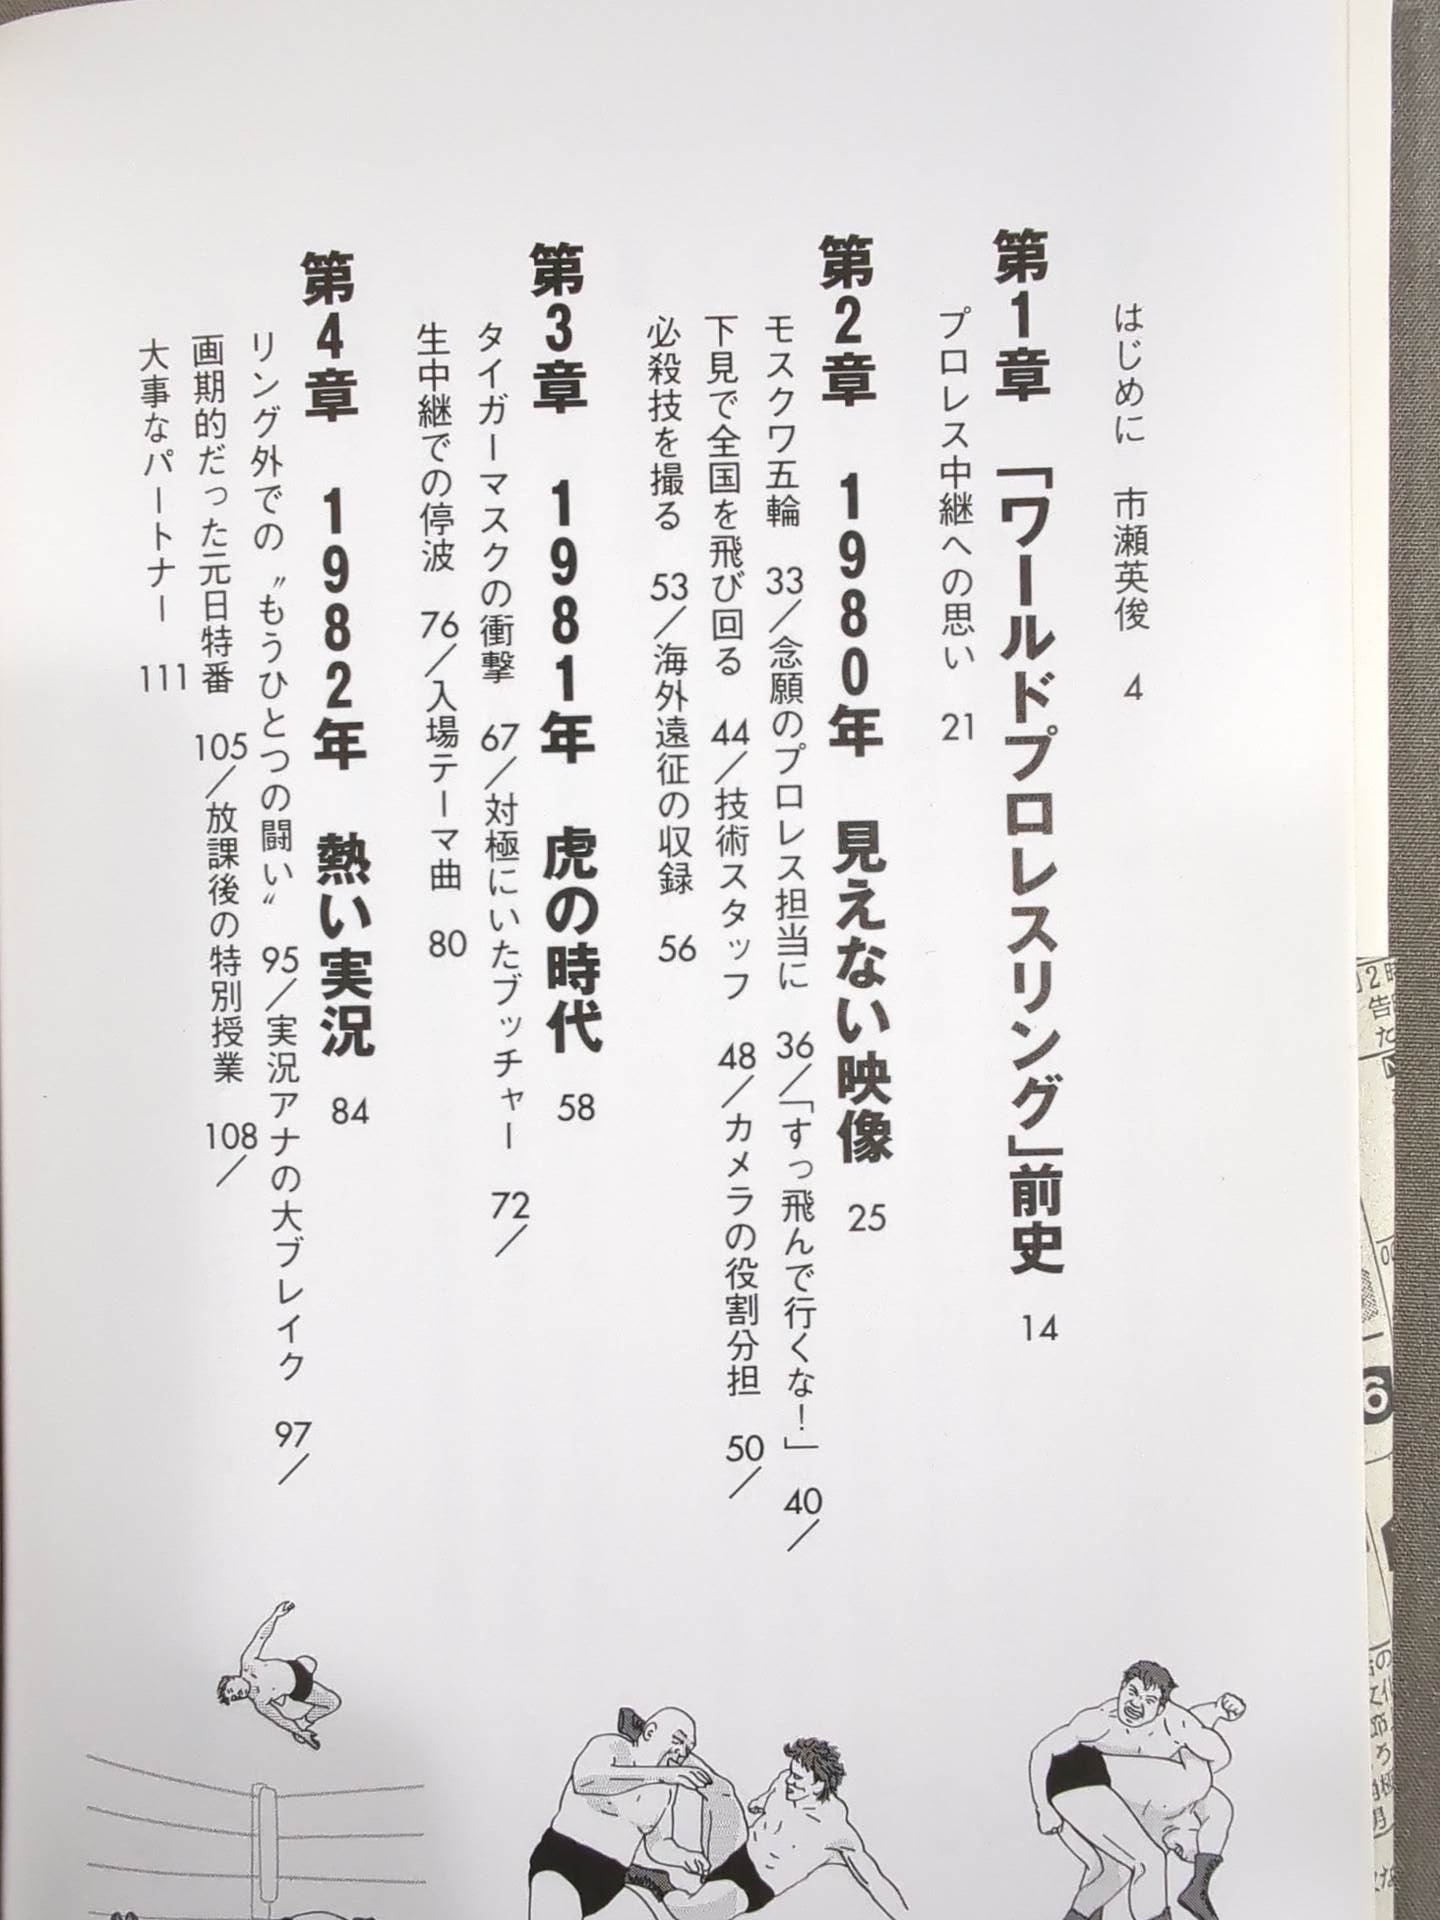 はじめに　市瀬英俊　4
第1章　「ワールドプロレスリング」前史　14
プロレス中継への思い　21
第2章　1980年　見えない映像　25
モスクワ五輪　33／念願のプロレス担当に　36／「すっ飛んで行くな！」　40／
下見で全国を飛び回る　44／技術スタッフ　48／カメラの役割分担　50／
必殺技を撮る　53／海外遠征の収録　56
第3章　1981年　虎の時代　58
タイガーマスクの衝撃　67／対極にいたブッチャー　72／
生中継での停波　76／入場テーマ曲　80
第4章　1982年　熱い実況　84
リング外での〝もうひとつの闘い〟　95／実況アナの大ブレイク　97／
画期的だった元日特番　105／放課後の特別授業　108／
大事なパートナー　111